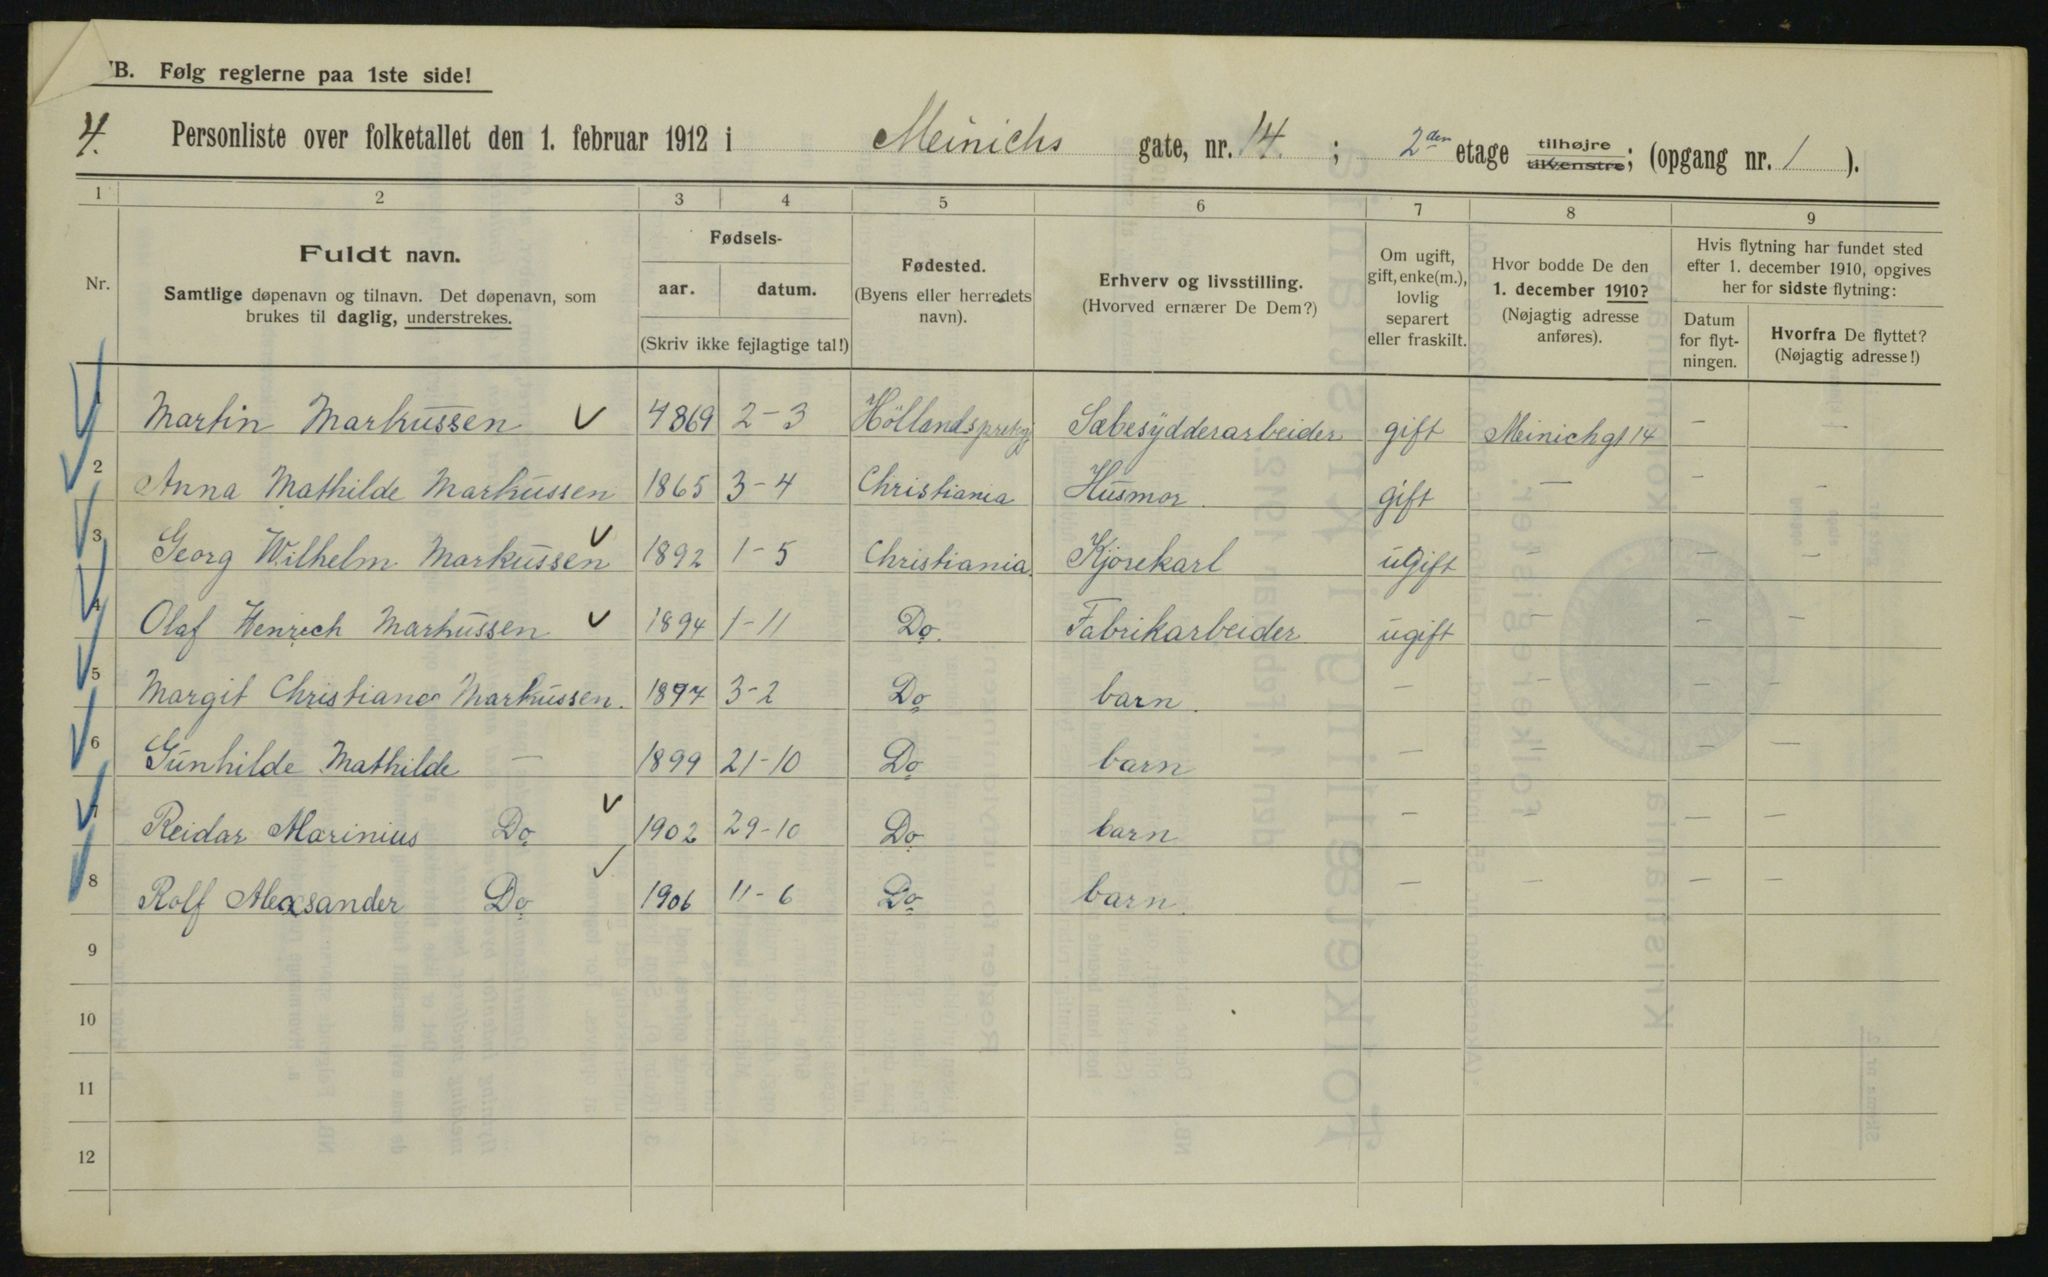 NB. Følg reglerne paa 1ste side!
4. Personliste over folketallet den 1. februar 1912 i Meinichs gate, nr. 14. ; 2den etage tilhøjre tilvenstre; (opgang nr. 1 ).
1 2 3 4 5 6 7 8 9
Nr.
Fuldt navn.
Samtlige døpenavn og tilnavn. Det døpenavn, som
brukes til daglig, understrekes.
Fødsels-
aar. datum.
(Skriv ikke fejlagtige tal!)
Fødested.
(Byens eller herredets
navn).
Erhverv og livsstilling.
(Hvorved ernærer De Dem?)
Om ugift,
gift, enke(m.),
lovlig
separert
eller fraskilt.
Hvor bodde De den
1. december 1910?
(Nøjagtig adresse
anføres).
Hvis flytning har fundet sted
efter 1. december 1910, opgives
her for sidste flytning:
Datum
for flyt-
ningen.
Hvorfra De flyttet?
(Nøjagtig adresse!)
1 Martin Markussen 1869 2-3 Höllandspretg Sæbesydderarbeider gift Meinichgt 14 — —
2 Anna Mathilde Markussen 1865 3-4 Christiania Husmor. gift — —
3 Georg Wilhelm Markussen 1892 1-5 Christiania. Kjørekarl ugift — — —
4 Olaf Henrich Markussen 1894 1-11 Do. Fabrikarbeider ugift — — —
5 Margit Christiane Markussen. 1897 3-2 Do barn. — — — —
6 Gunhilde Mathilde — 1899 21-10 Do barn — — — —
7 Reidar Marinius Do 1902 29-10 Do barn — — — —
8 Rolf Alexsander Do 1906 11-6 Do barn. — — — —
9
10
11
12